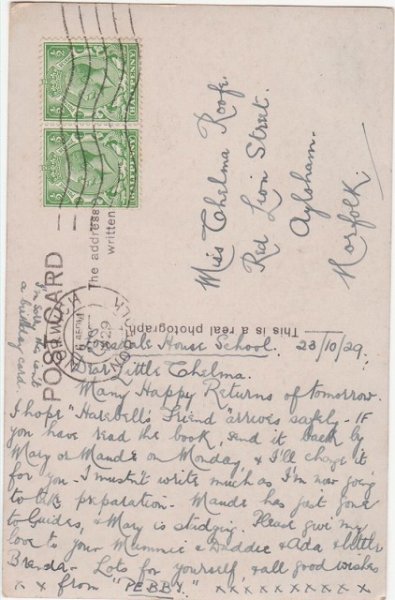 HALFPENNY
HALFPENNY
Miss Thelma Roofe.
Red Lion Street.
Aylsham.
Norfolk.
POST CARD
The address
written
This is a real photograph.
NORWICH
I'm sorry this isn't
a birthday card
Lonsdale House School. 23/10/29.
Dear Little Thelma.
Many Happy Returns of tomorrow.
I hope "Harebell's Friend" arrives safely. If
you have read the book, send it back by
Mary or Maude on Monday, & I'll change it
for you. I mustn't write much as I'm now going
to take preparation. Maude has just gone
to Guides, & Mary is studying. Please give my
love to your Mummie & Daddie & Ada & little
Brenda. Lots for yourself, & all good wishes
x x from "PEBBY." x x x x x x x x x x